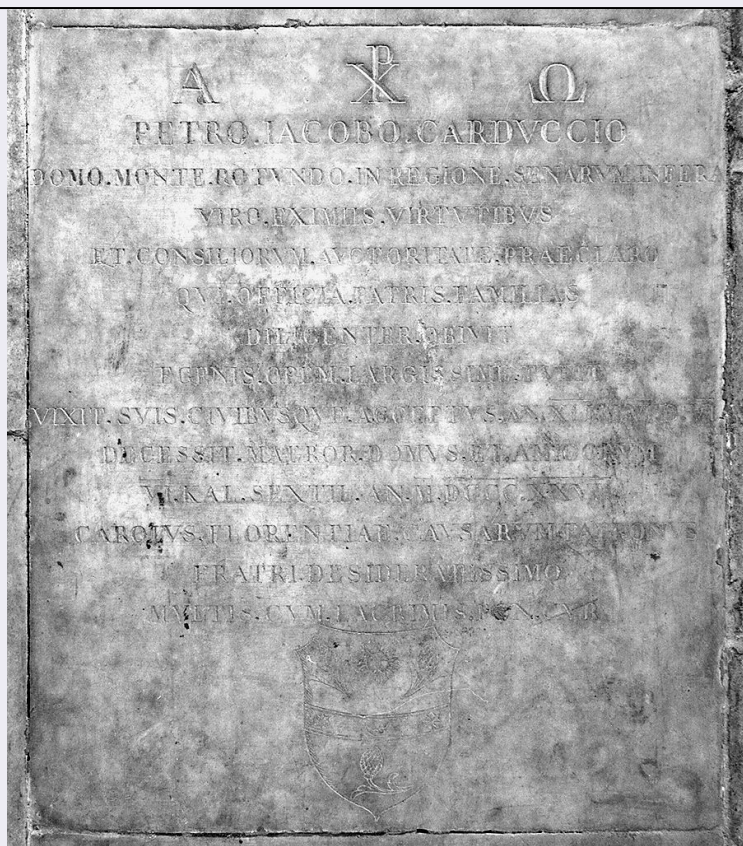 Α ☧ Ω
PETRO.IACOBO.CARDVCCIO
DOMO.MONTE.ROTVNDO.IN REGIONE.SENARVM.INFERA
VIRO.EXIMIIS.VIRTVTIBVS
ET.CONSILIORVM.AVCTORITATE.PRAECLARO
QVI.OFFICIA.PATRIS.FAMILIAS
DILIGENTER.OBIVIT
EGENIS.OPEM.LARGISSIME.TVLIT
VIXIT.SVIS.CIVIBVSQVE.ACCEPTVS.AN.
DECESSIT.MAEROR.DOMVS.ET.AMICORVM
VI.KAL.SEXTIL.AN.
CAROLVS.FLORENTIAE.CAVSARVM.PATRONVS
FRATRI.DESIDERATISSIMO
MVLTIS.CVM.LACRIMIS.